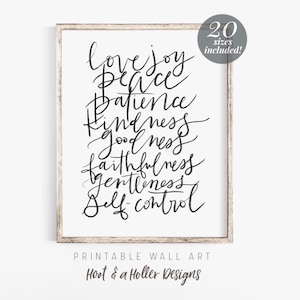 20
sizes
included!
Love joy
peace
patience
kindness
goodness
faithfulness
gentleness
self-control
PRINTABLE WALL ART
Hoot & a Holler Designs